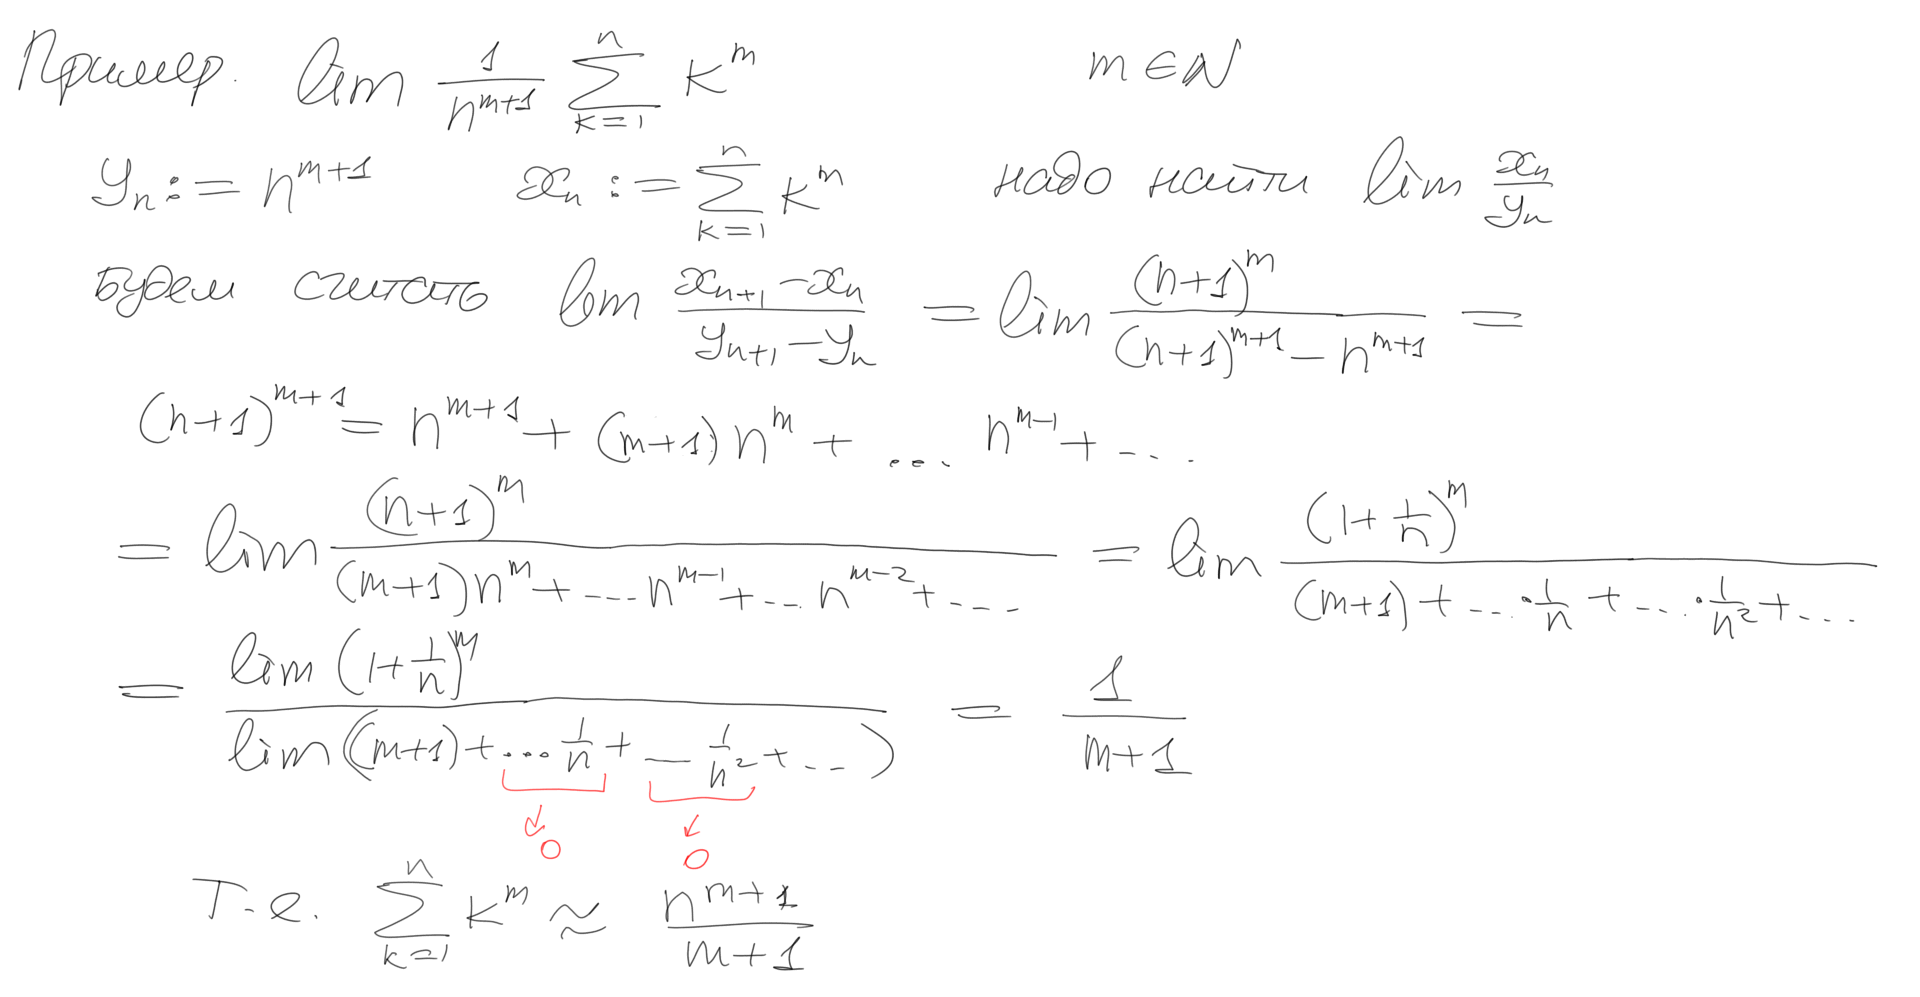 Пример. lim 1/n^{m+1} ∑_{k=1}^{n} k^m m ∈ N
y_n := n^{m+1} x_n := ∑_{k=1}^{n} k^m надо найти lim x_n/y_n
будем считать lim (x_{n+1} − x_n)/(y_{n+1} − y_n) = lim (n+1)^m/((n+1)^{m+1} − n^{m+1}) =
(n+1)^{m+1} = n^{m+1} + (m+1) n^m + ... n^{m−1} + ...
= lim (n+1)^m/((m+1) n^m + ... n^{m−1} + ... n^{m−2} + ...) = lim (1 + 1/n)^m/((m+1) + ... · 1/n + ... · 1/n² + ...)
= lim (1 + 1/n)^m / lim ((m+1) + ... 1/n + — 1/n² + ...) = 1/(m+1)
↓ 0 ↓ 0
Т.е. ∑_{k=1}^{n} k^m ≈ n^{m+1}/(m+1)